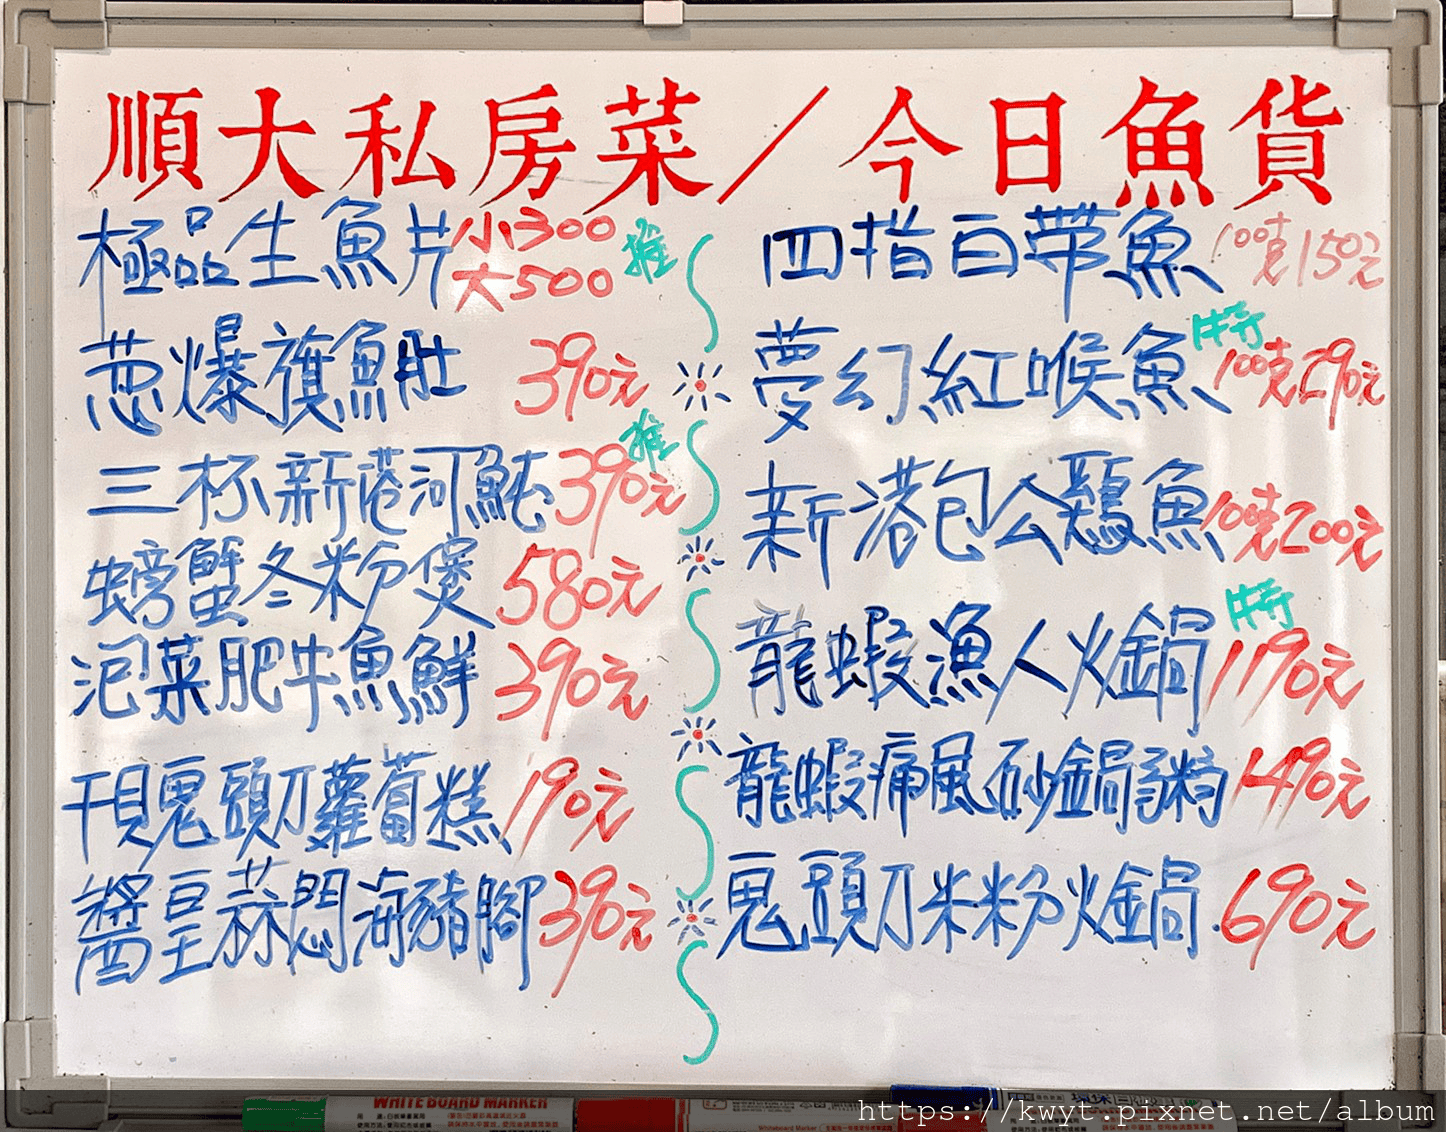 順大私房菜／今日魚貨
極品生魚片 小300 推
大500
葱爆旗魚肚 390元
三杯新港河魨 390元 推
螃蟹冬粉煲 580元
泡菜肥牛魚鮮 390元
干貝鬼頭刀蘿蔔糕 190元
醬豆蒜悶海豬腳 390元
四指白帶魚 100克150元
夢幻紅喉魚 特 100克290元
新港包公鷄魚 100克200元
龍蝦漁人火鍋 特 1190元
龍蝦痛風砂鍋粥 1490元
鬼頭刀米粉火鍋 690元
WHITE BOARD MARKER
https://kwyt.pixnet.net/album